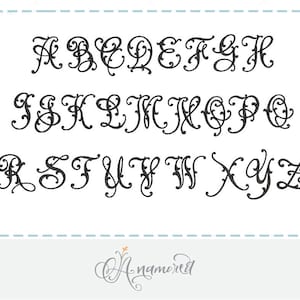 A B C D E F G H
I J K L M N O P Q
R S T U V W X Y Z
Anamored